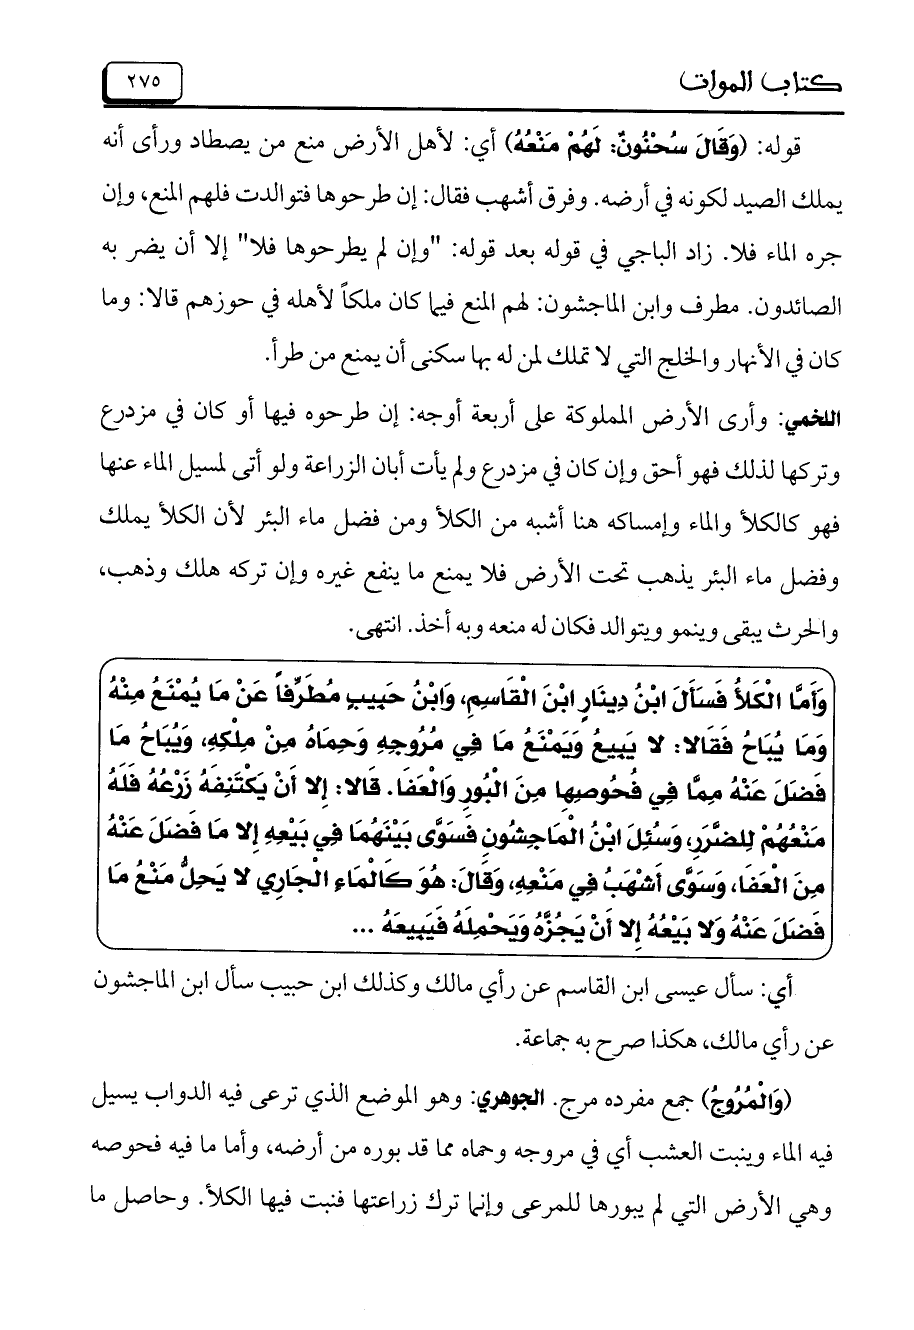 كتاب الموات
٢٧٥
قوله: (وَقَالَ سُحْنُونٌ: لَهُمْ مَنْعُهُ) أي: لأهل الأرض منع من يصطاد ورأى أنه
يملك الصيد لكونه في أرضه. وفرق أشهب فقال: إن طرحوها فتوالدت فلهم المنع، وإن
جره الماء فلا. زاد الباجي في قوله بعد قوله: "وإن لم يطرحوها فلا" إلا أن يضر به
الصائدون. مطرف وابن الماجشون: لهم المنع فيما كان ملكاً لأهله في حوزهم قالا: وما
كان في الأنهار والخلج التي لا تملك لمن له بها سكنى أن يمنع من طرأ.
اللخمي: وأرى الأرض المملوكة على أربعة أوجه: إن طرحوه فيها أو كان في مزدرع
وتركها لذلك فهو أحق وإن كان في مزدرع ولم يأت أبان الزراعة ولو أتى لمسيل الماء عنها
فهو كالكلأ والماء وإمساكه هنا أشبه من الكلأ ومن فضل ماء البئر لأن الكلأ يملك
وفضل ماء البئر يذهب تحت الأرض فلا يمنع ما ينفع غيره وإن تركه هلك وذهب،
والحرث يبقى وينمو ويتوالد فكان له منعه وبه أخذ. انتهى.
وَأَمَّا الْكَلأُ فَسَأَلَ ابْنُ دِينَارٍ ابْنَ الْقَاسِمِ، وَابْنُ حَبِيبٍ مُطَرِّفاً عَنْ مَا يُمْنَعُ مِنْهُ
وَمَا يُبَاحُ فَقَالا: لا يَبِيعُ وَيَمْنَعُ مَا فِي مُرُوجِهِ وَحِمَاهُ مِنْ مِلْكِهِ، وَيُبَاحُ مَا
فَضَلَ عَنْهُ مِمَّا فِي فُحُوصِهَا مِنَ الْبُورِ وَالْعَفَا. قَالا: إِلا أَنْ يَكْتَنِفَهُ زَرْعُهُ فَلَهُ
مَنْعُهُمْ لِلضَّرَرِ، وَسُئِلَ ابْنُ الْمَاجِشُونِ فَسَوَّى بَيْنَهُمَا فِي بَيْعِهِ إِلا مَا فَضَلَ عَنْهُ
مِنَ الْعَفَا، وَسَوَّى أَشْهَبُ فِي مَنْعِهِ، وَقَالَ: هُوَ كَالْمَاءِ الْجَارِي لا يَحِلُّ مَنْعُ مَا
فَضَلَ عَنْهُ وَلا بَيْعُهُ إِلا أَنْ يَجُزَّهُ وَيَحْمِلَهُ فَيَبِيعَهُ ...
أي: سأل عيسى ابن القاسم عن رأي مالك وكذلك ابن حبيب سأل ابن الماجشون
عن رأي مالك، هكذا صرح به جماعة.
(وَالْمُرُوجُ) جمع مفرده مرج. الجوهري: وهو الموضع الذي ترعى فيه الدواب يسيل
فيه الماء وينبت العشب أي في مروجه وحماه مما قد بوره من أرضه، وأما ما فيه فحوصه
وهي الأرض التي لم يبورها للمرعى وإنما ترك زراعتها فنبت فيها الكلأ. وحاصل ما